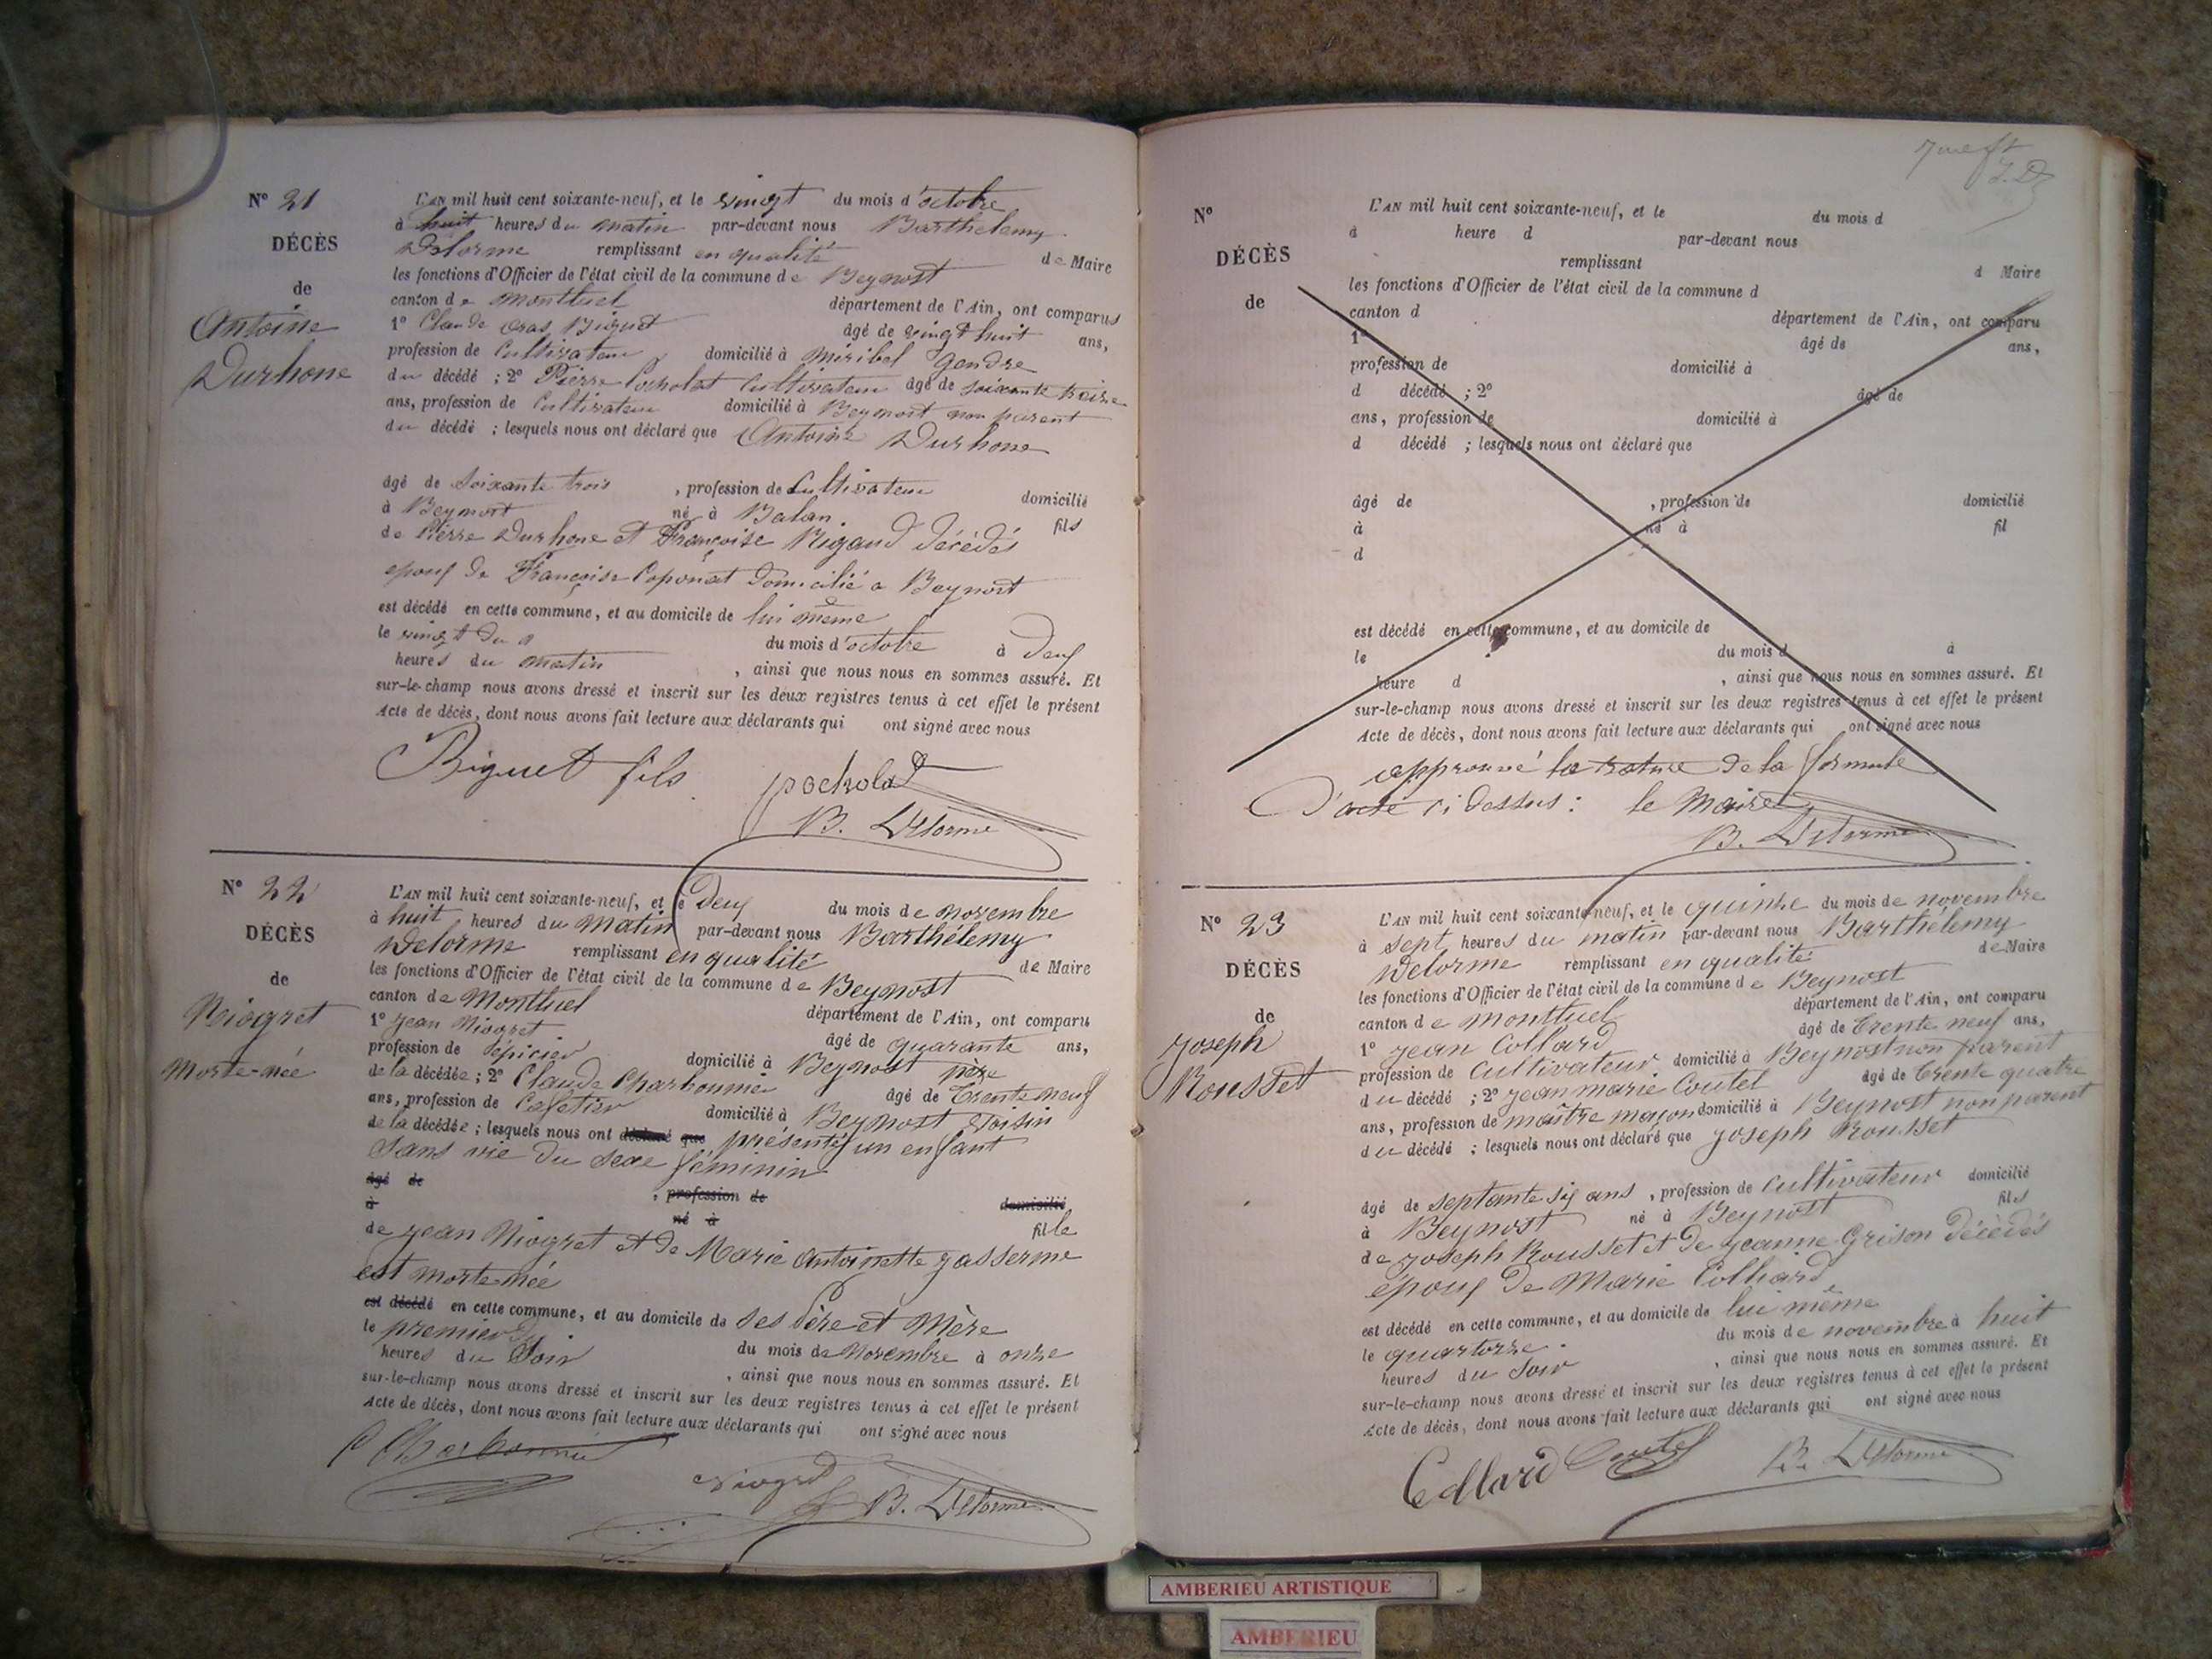 N° 21
DÉCÈS
de
Antoine
Durhone
L'AN mil huit cent soixante-neuf, et le vingt du mois d'octobre
à huit heures du matin par-devant nous Barthelemy
Delorme remplissant en qualité de Maire
les fonctions d'Officier de l'état civil de la commune de Beynost
canton de Montluel département de l'Ain, ont comparus
1° Claude Gras Biguet âgé de vingt huit ans,
profession de Cultivateur domicilié à Miribel gendre
du décédé ; 2° Pierre Pocholat Cultivateur âgé de soixante treize
ans, profession de Cultivateur domicilié à Beynost non parent
du décédé ; lesquels nous ont déclaré que Antoine Durhone
âgé de Soixante trois , profession de Cultivateur domicilié
à Beynost né à Balan. fils
de Pierre Durhone et Françoise Rigaud décédés
epoux de Françoise Caponat domicilié a Beynost
est décédé en cette commune, et au domicile de lui même
le vingt du mois d'octobre à deux
heures du matin , ainsi que nous nous en sommes assuré. Et
sur-le-champ nous avons dressé et inscrit sur les deux registres tenus à cet effet le présent
Acte de décès, dont nous avons fait lecture aux déclarants qui ont signé avec nous
Biguet fils pocholat
B. Delorme
N° 22
DÉCÈS
de
Niogret
Morte-née
L'AN mil huit cent soixante-neuf, et le deux du mois de novembre
à huit heures du Matin par-devant nous Barthélemy
Delorme remplissant en qualité de Maire
les fonctions d'Officier de l'état civil de la commune de Beynost
canton de Montluel département de l'Ain, ont comparu
1° Jean Niogret âgé de quarante ans,
profession de épicier domicilié à Beynost père
de la décédée ; 2° Claude Charbonnier âgé de Trente neuf
ans, profession de Cafetier domicilié à Beynost voisin
de la décédée ; lesquels nous ont déclaré que présenté un enfant
Sans vie du sexe féminin
âgé de , profession de domicilié
à né à fille
de Jean Niogret et de Marie Antoinette Jasserme
est morte-née
est décédé en cette commune, et au domicile de ses Père et Mère
le premier du mois de Novembre à onze
heures du Soir , ainsi que nous nous en sommes assuré. Et
sur-le-champ nous avons dressé et inscrit sur les deux registres tenus à cet effet le présent
Acte de décès, dont nous avons fait lecture aux déclarants qui ont signé avec nous
C Charbonnié
Niogret B. Delorme
N°
DÉCÈS
de
L'AN mil huit cent soixante-neuf, et le du mois d
à heure d par-devant nous
remplissant d Maire
les fonctions d'Officier de l'état civil de la commune d
canton d département de l'Ain, ont comparu
1° âgé de ans,
profession de domicilié à
d décédé ; 2° âgé de
ans, profession de domicilié à
d décédé ; lesquels nous ont déclaré que
âgé de , profession de domicilié
à né à fil
d
est décédé en cette commune, et au domicile de
le du mois d à
heure d , ainsi que nous nous en sommes assuré. Et
sur-le-champ nous avons dressé et inscrit sur les deux registres tenus à cet effet le présent
Acte de décès, dont nous avons fait lecture aux déclarants qui ont signé avec nous
approuvé la rature de la formule
D'acte ci dessus : le Maire
B. Delorme
N° 23
DÉCÈS
de
Joseph
Rousset
L'AN mil huit cent soixante-neuf, et le quinze du mois de novembre
à sept heures du matin par-devant nous Barthélemy
Delorme remplissant en qualité de Maire
les fonctions d'Officier de l'état civil de la commune de Beynost
canton de Montluel département de l'Ain, ont comparu
1° Jean Collard âgé de Trente neuf ans,
profession de Cultivateur domicilié à Beynost non parent
du décédé ; 2° Jean Marie Coutel âgé de trente quatre
ans, profession de maître maçon domicilié à Beynost non parent
du décédé ; lesquels nous ont déclaré que Joseph Rousset
âgé de septante six ans , profession de Cultivateur domicilié
à Beynost né à Beynost fils
de Joseph Rousset et de Jeanne Grison décédés
époux de Marie Collard
est décédé en cette commune, et au domicile de lui même
le quartorze du mois de novembre à huit
heures du Soir , ainsi que nous nous en sommes assuré. Et
sur-le-champ nous avons dressé et inscrit sur les deux registres tenus à cet effet le présent
Acte de décès, dont nous avons fait lecture aux déclarants qui ont signé avec nous
Collard Coutel B. Delorme
AMBERIEU ARTISTIQUE
AMBERIEU